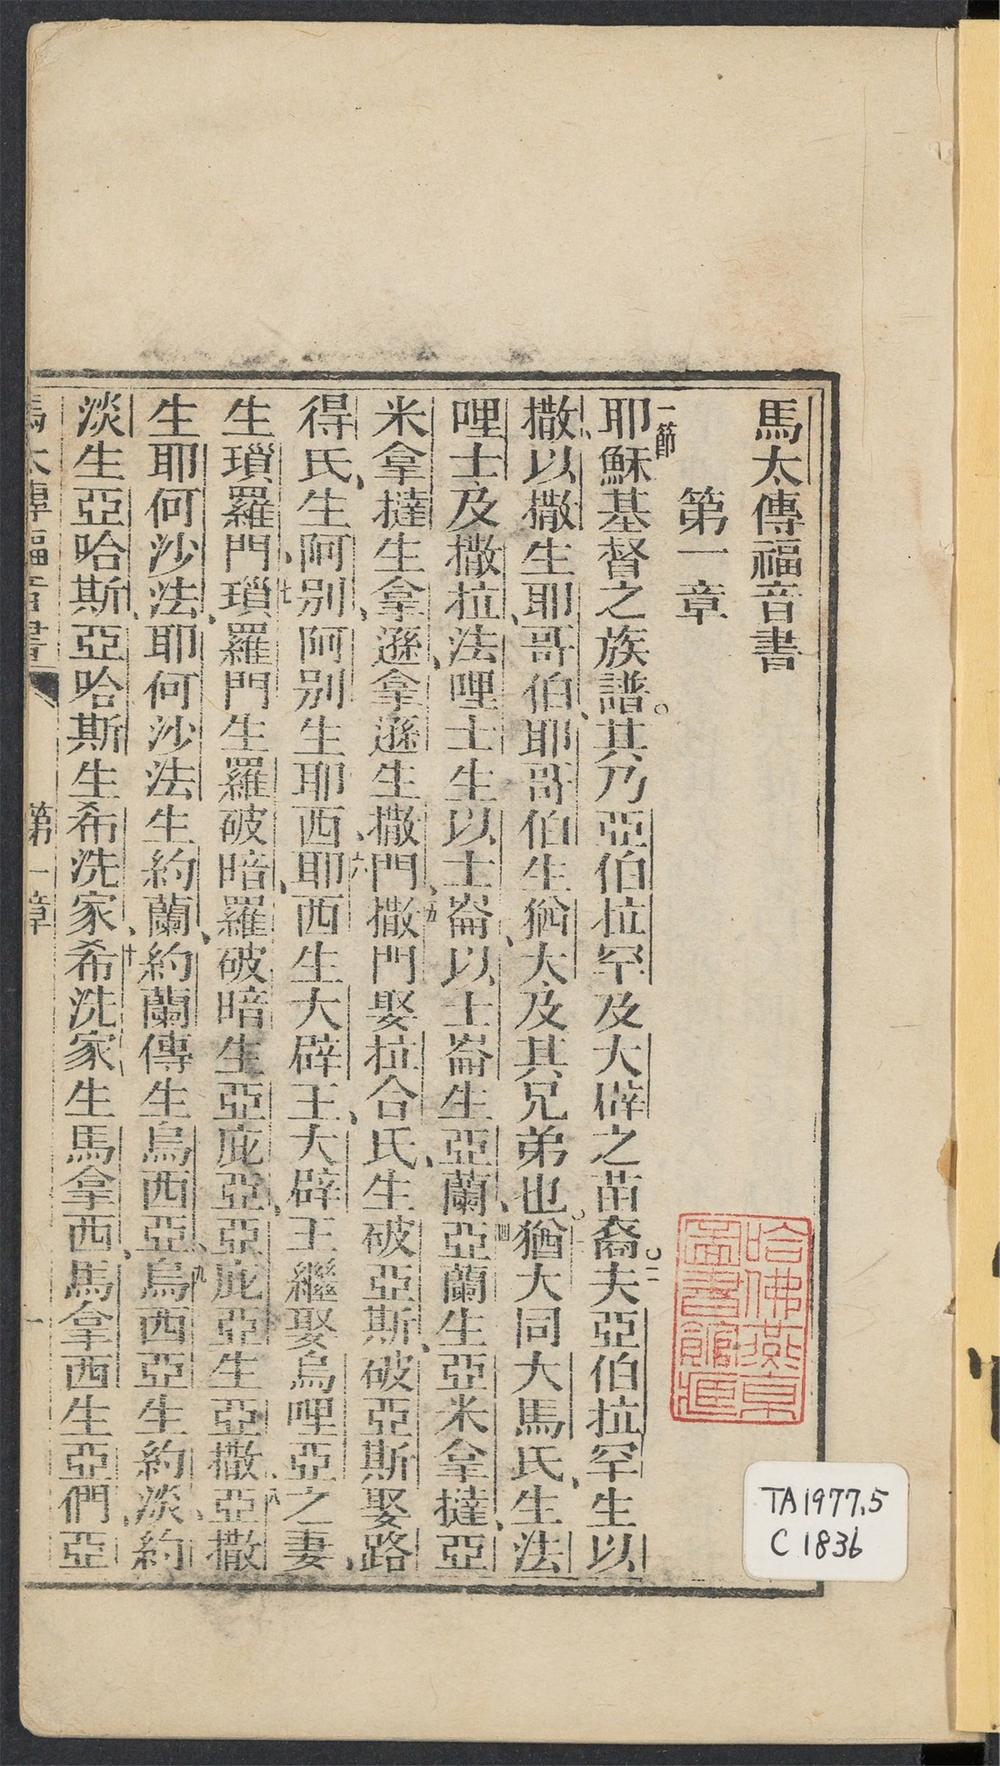 馬太傳福音書
第一章
一節耶穌基督之族譜。其乃亞伯拉罕及大辟之苗裔。二夫亞伯拉罕生以
撒、以撒生耶哥伯、耶哥伯生猶大及其兄弟也。三猶大同大馬氏、生法
哩士及撒拉、法哩士生以士崙、以士崙生亞蘭、四亞蘭生亞米拿撻、亞
米拿撻生拿遜、拿遜生撒門、五撒門娶拉合氏、生破亞斯、破亞斯娶路
得氏、生阿別、阿別生耶西、六耶西生大辟王、大辟王繼娶烏哩亞之妻、
生瑣羅門、七瑣羅門生羅破暗、羅破暗生亞庇亞、亞庇亞生亞撒、八亞撒
生耶何沙法、耶何沙法生約蘭、約蘭傳生烏西亞、九烏西亞生約淡、約
淡生亞哈斯、亞哈斯生希洗家、十希洗家生馬拿西、馬拿西生亞們、亞
馬太傳福音書 第一章 一
哈佛燕京
圖書館藏
TA1977.5
C1836